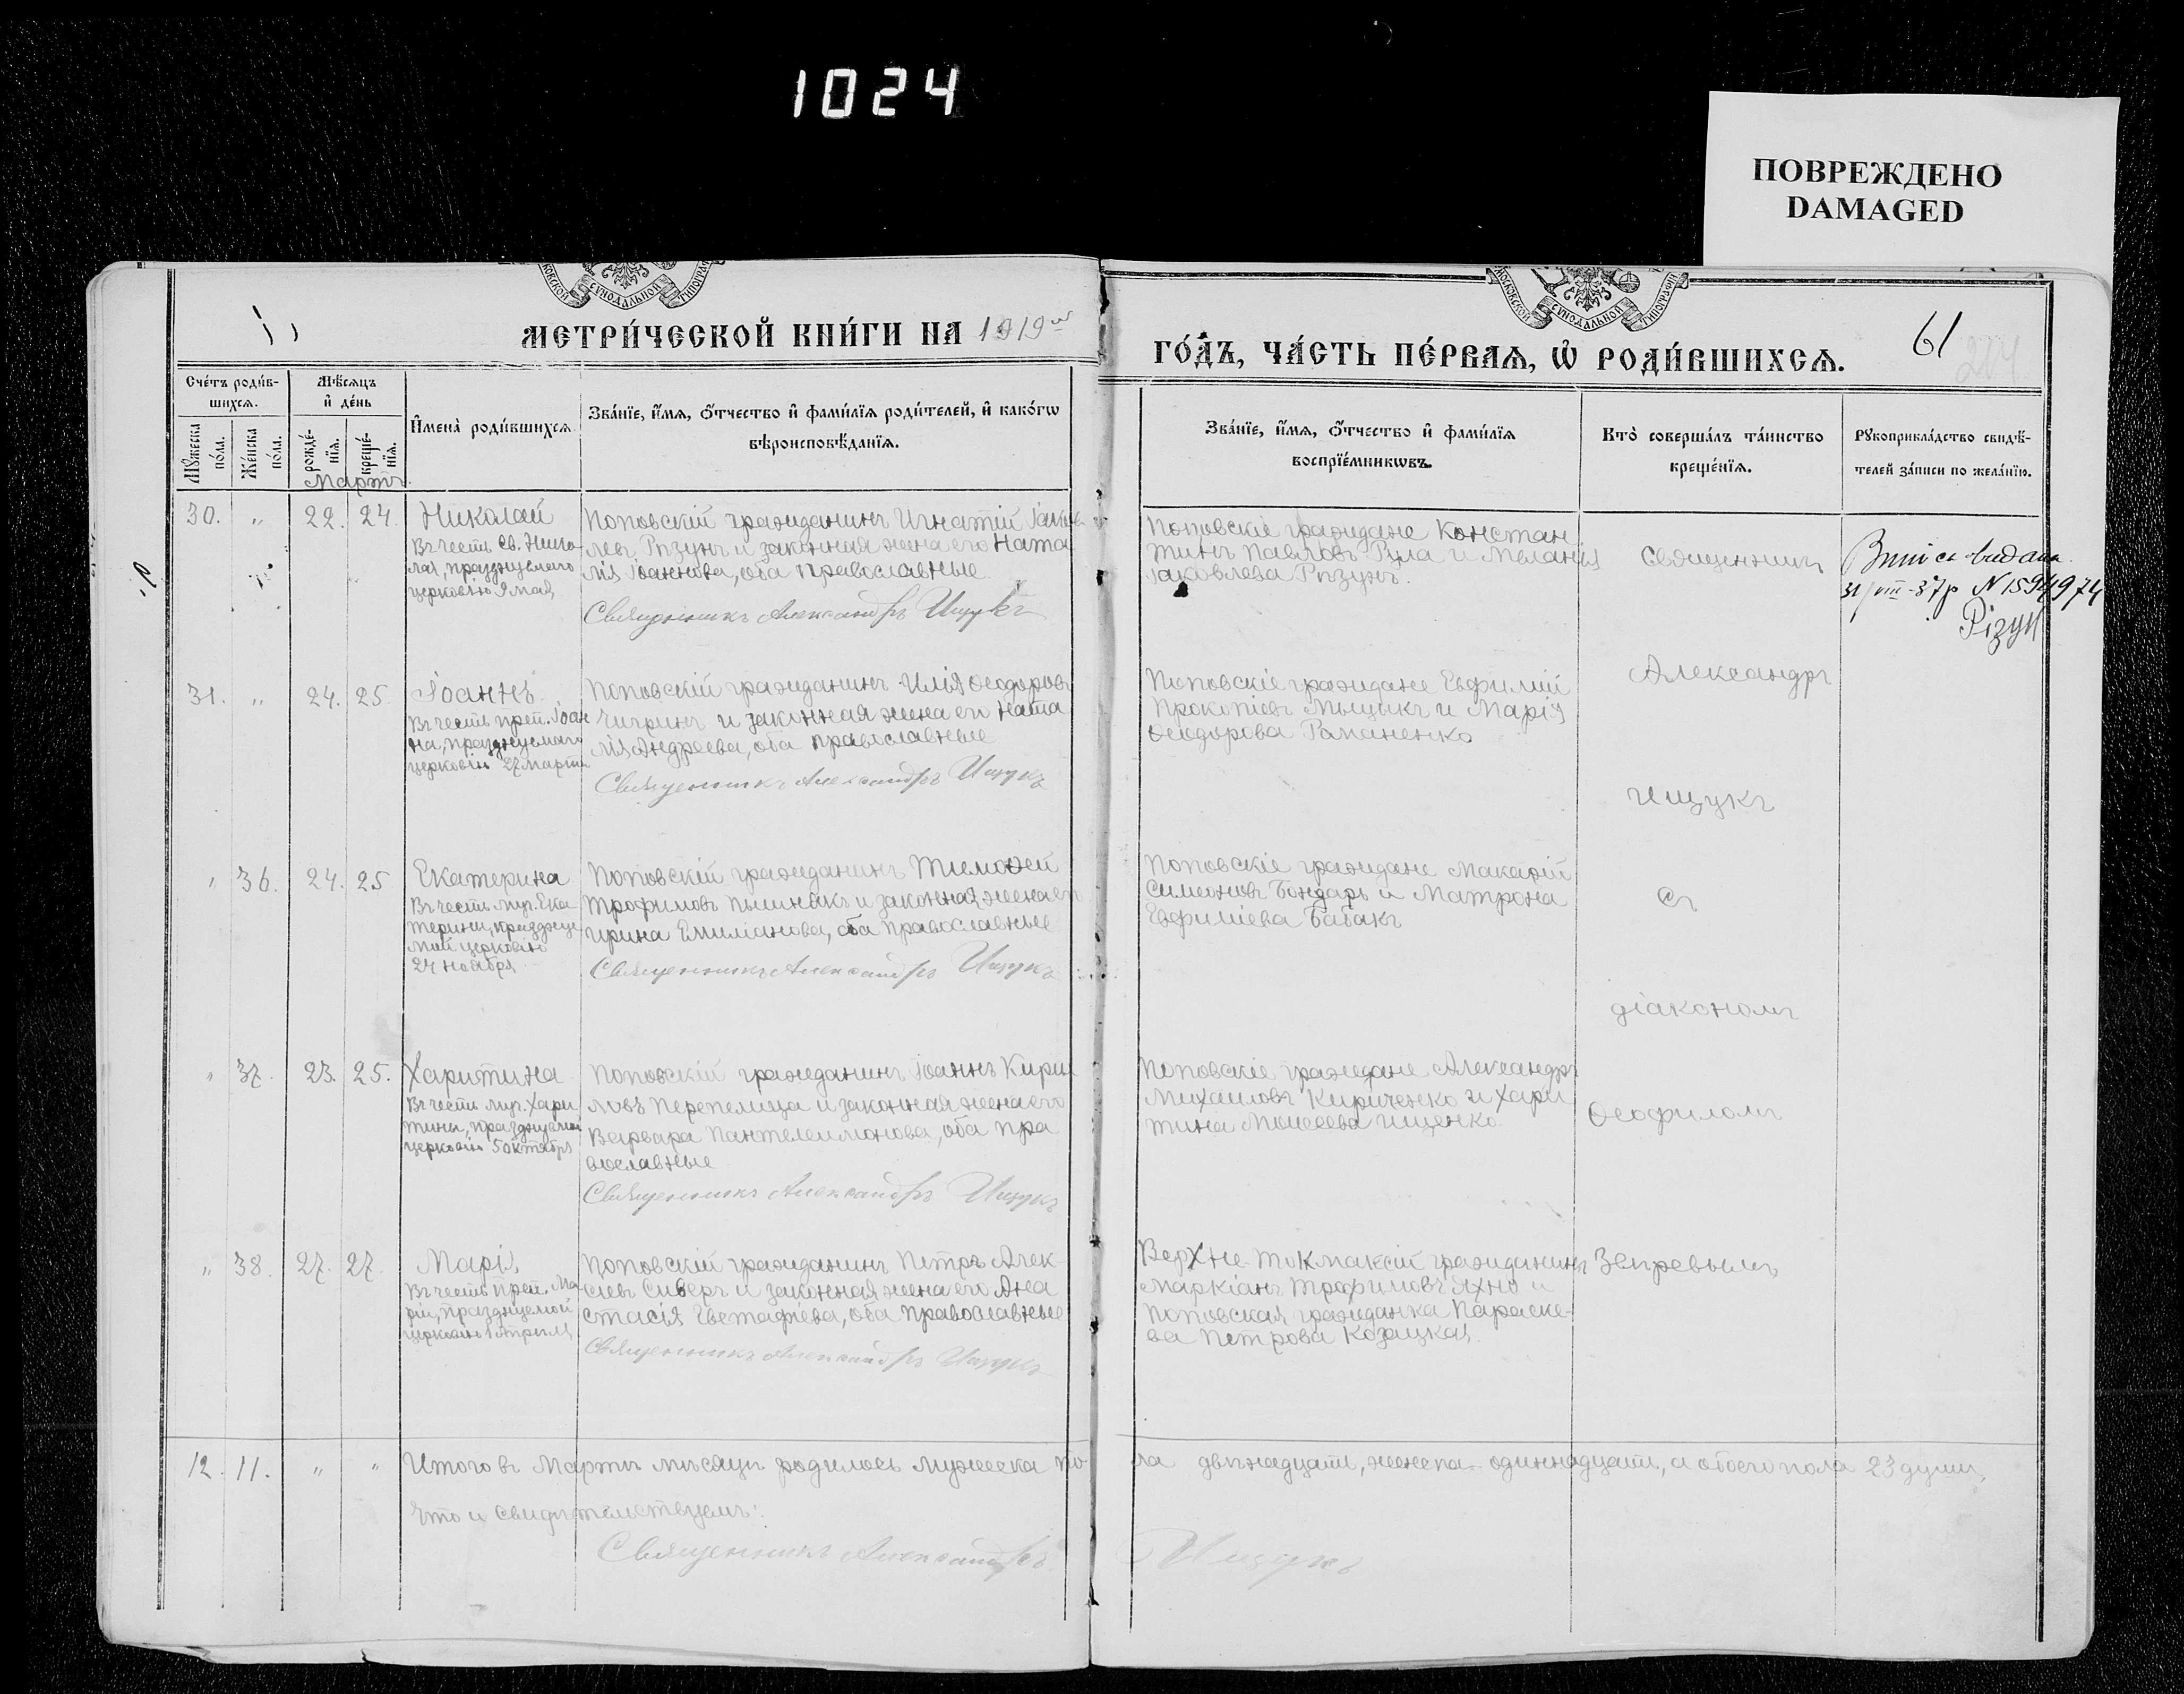 1024
ПОВРЕЖДЕНО
DAMAGED
МЕТРИ́ЧЕСКОЙ КНИ́ГИ НА 1919 ый
ГО́ДЪ, ЧА́СТЬ ПЕ́РВАЯ, Ѡ҆ РОДИ́ВШИХСЯ.
61
204
Сче́тъ роди́в-
шихся.
Мѣ́сяцъ
и҆ де́нь
Му́жеска
по́ла.
Же́нска
по́ла.
рожде́-
нїя.
креще́-
нїя.
Мартъ.
И҆мена̀ роди́вшихся.
Зва́нїе, и҆́мя, ѻ҆́тчество и҆ фами́лїя роди́телей, и҆ како́гѡ
вѣроисповѣ́данїя.
Зва́нїе, и҆́мя, ѻ҆́тчество и҆ фами́лїя
воспрїе́мникѡвъ.
Кто̀ соверша́лъ та́инство
креще́нїя.
Рꙋкоприкла́дство свидѣ́-
телей за́писи по жела́нїю.
30. " 22. 24. Николай
Въ честь св. Нико-
лая, празднуемаго
церковію 9 мая
Поповскій гражданинъ Игнатій Іаков
левъ Ризунъ и законная жена его Ната
лія Іоаннова, оба православные
Священникъ Александръ Ищукъ
Поповскіе граждане Констан
тинъ Павловъ Рула и Меланія
Іаковлева Ризунъ.
Священникъ
Випись видана
31/VIII-37р N 1594974
Різун
31. " 24. 25 Іоаннъ
Въ честь преп. Іоан
на, празднуемаго
церковію 27 марта
Поповскій гражданинъ Илія Ѳеодоровъ
Чигринъ и законная жена его Ната
лія Андреева, оба православные
Священникъ Александръ Ищукъ
Поповскіе граждане Евфимій
Прокопіевъ Мыцикъ и Марія
Ѳеодорова Романенко
Александръ
Ищукъ
" 36. 24. 25 Екатерина
Въ честь муч. Ека
терины, празднуе
мой церковію
24 ноября
Поповскій гражданинъ Тимоѳей
Трофимовъ Пыннакъ и законная жена его
Ирина Емиліанова, оба православные
Священникъ Александръ Ищукъ
Поповскіе граждане Макарій
Симеоновъ Бондарь и Матрона
Евфиміева Бабакъ
съ
діакономъ
" 37. 23. 25. Харитина
Въ честь муч. Хари
тины, празднуемой
церковію 5 октября
Поповскій гражданинъ Іоаннъ Кирил
ловъ Перепелица и законная жена его
Варвара Пантелеимонова, оба пра
вославные
Священникъ Александръ Ищукъ
Поповскіе граждане Александръ
Михаиловъ Кириченко и Хари
тина Моисеева Ищенко.
Ѳеофиломъ
" 38. 27. 27. Марія
Въ честь преп. Ма
ріи, празднуемой
церковію 1 Апрѣля
Поповскій гражданинъ Петръ Алек-
сіевъ Сиверъ и законная жена его Ана
стасія Евстафіева, оба православные
Священникъ Александръ Ищукъ
Верхне-Токмакскій гражданинъ
Маркіанъ Трофимовъ Яхно и
Поповская гражданка Параске-
ва Петрова Козацкая.
12. 11. " " Итого въ Мартѣ мѣсяцѣ родилось мужеска по
ла двѣнадцать, женска - одиннадцать, а обоего пола 23 души,
что и свидѣтельствуемъ:
Священникъ Александръ Ищукъ